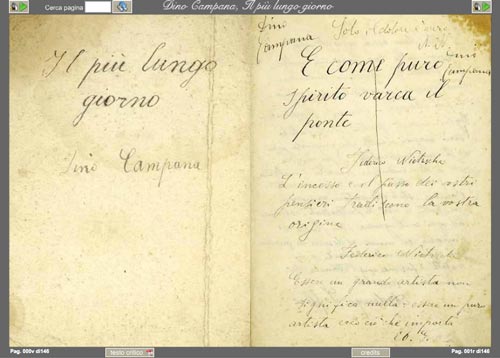 Cerca pagina
Dino Campana, Il più lungo giorno
Il più lungo
giorno
Dino Campana
Dino
Campana
Solo il dolore è vero
Dino
Campana
E come puro
spirito varca il
ponte
Federico Nietzsche
L'incesso e il passo dei vostri
pensieri tradiscono la vostra
origine
Federico Nietzsche
Essere un grande artista non
significa nulla: essere un puro
artista ecco ciò che importa
Pag. 000v di146
testo critico
credits
Pag. 001r di146